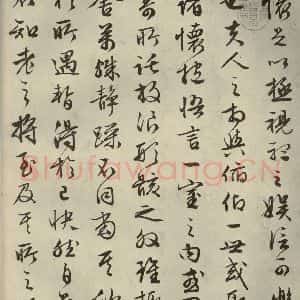 懷足以極視聽之娛信可樂
也夫人之相與俯仰一世或取
諸懷抱悟言一室之內或因
寄所託放浪形骸之外雖趣
舍萬殊靜躁不同當其欣
於所遇暫得於己快然自
不知老之將至及其所之
Shufawang.CN